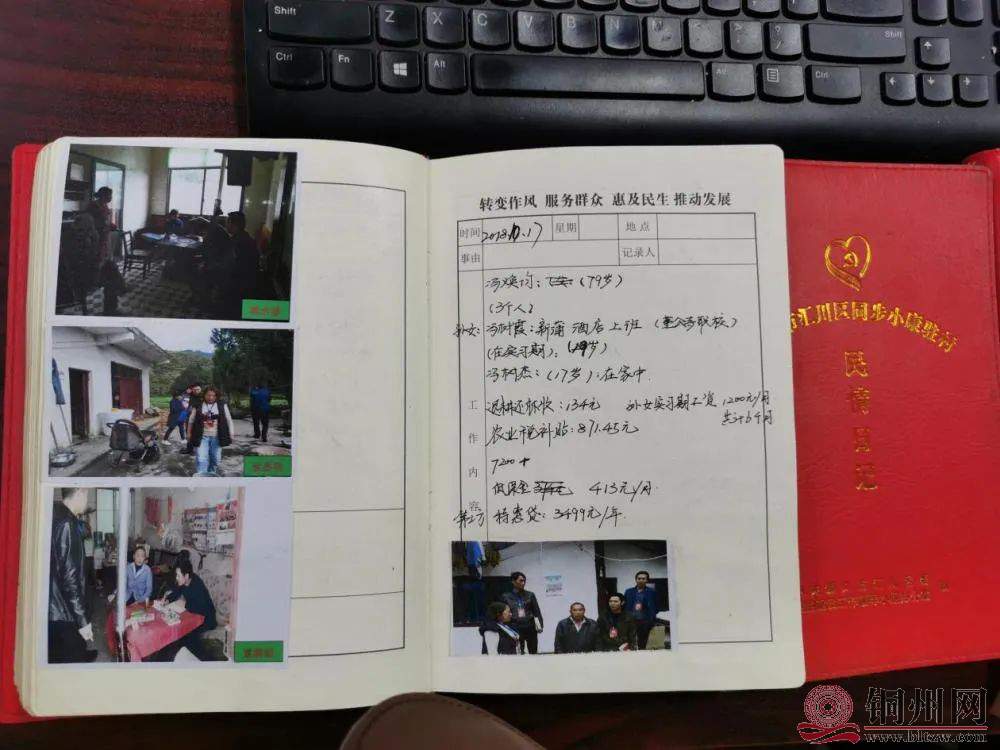 Shift
Z X C V B N M
Shift
Ctrl
Fn
Alt
Alt
Ctrl
转变作风 服务群众 惠及民生 推动发展
时间
2018.10.17
星期
地点
事由
记录人
(79岁)
(3个人)
孙女:
新蒲酒店上班
(在实习期):
冯树杰:(17岁):在家中
工作内容
退耕还林收:134元
外女实习期工资1200元/月
共计6个月
农业税补贴:871.45元
7200+
低保金
413元/月
特惠贷:3499元/年
汇川区同步小康驻村
民情日记
铜州网
www.bltzw.com